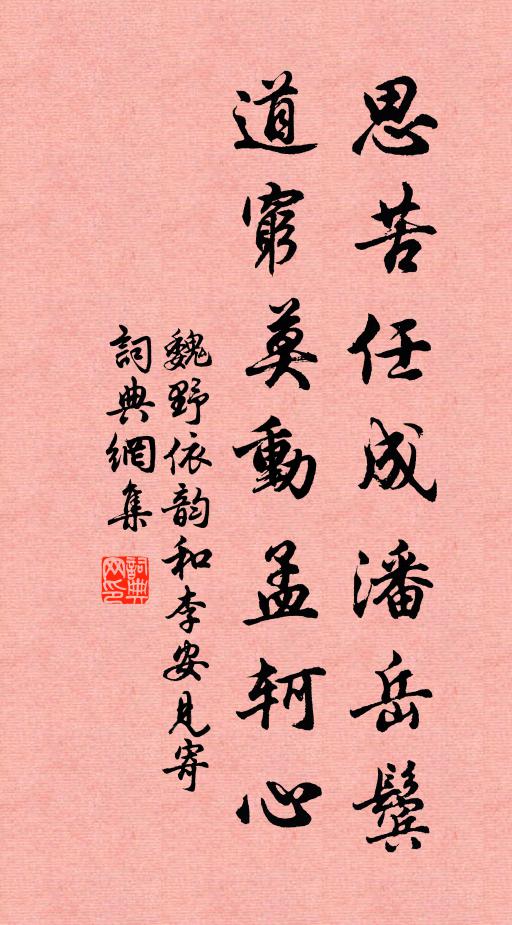 思苦任成潘岳鬓
道窮莫動孟軻心
魏野依韵和李安見寄
詞典網集
詞典网印